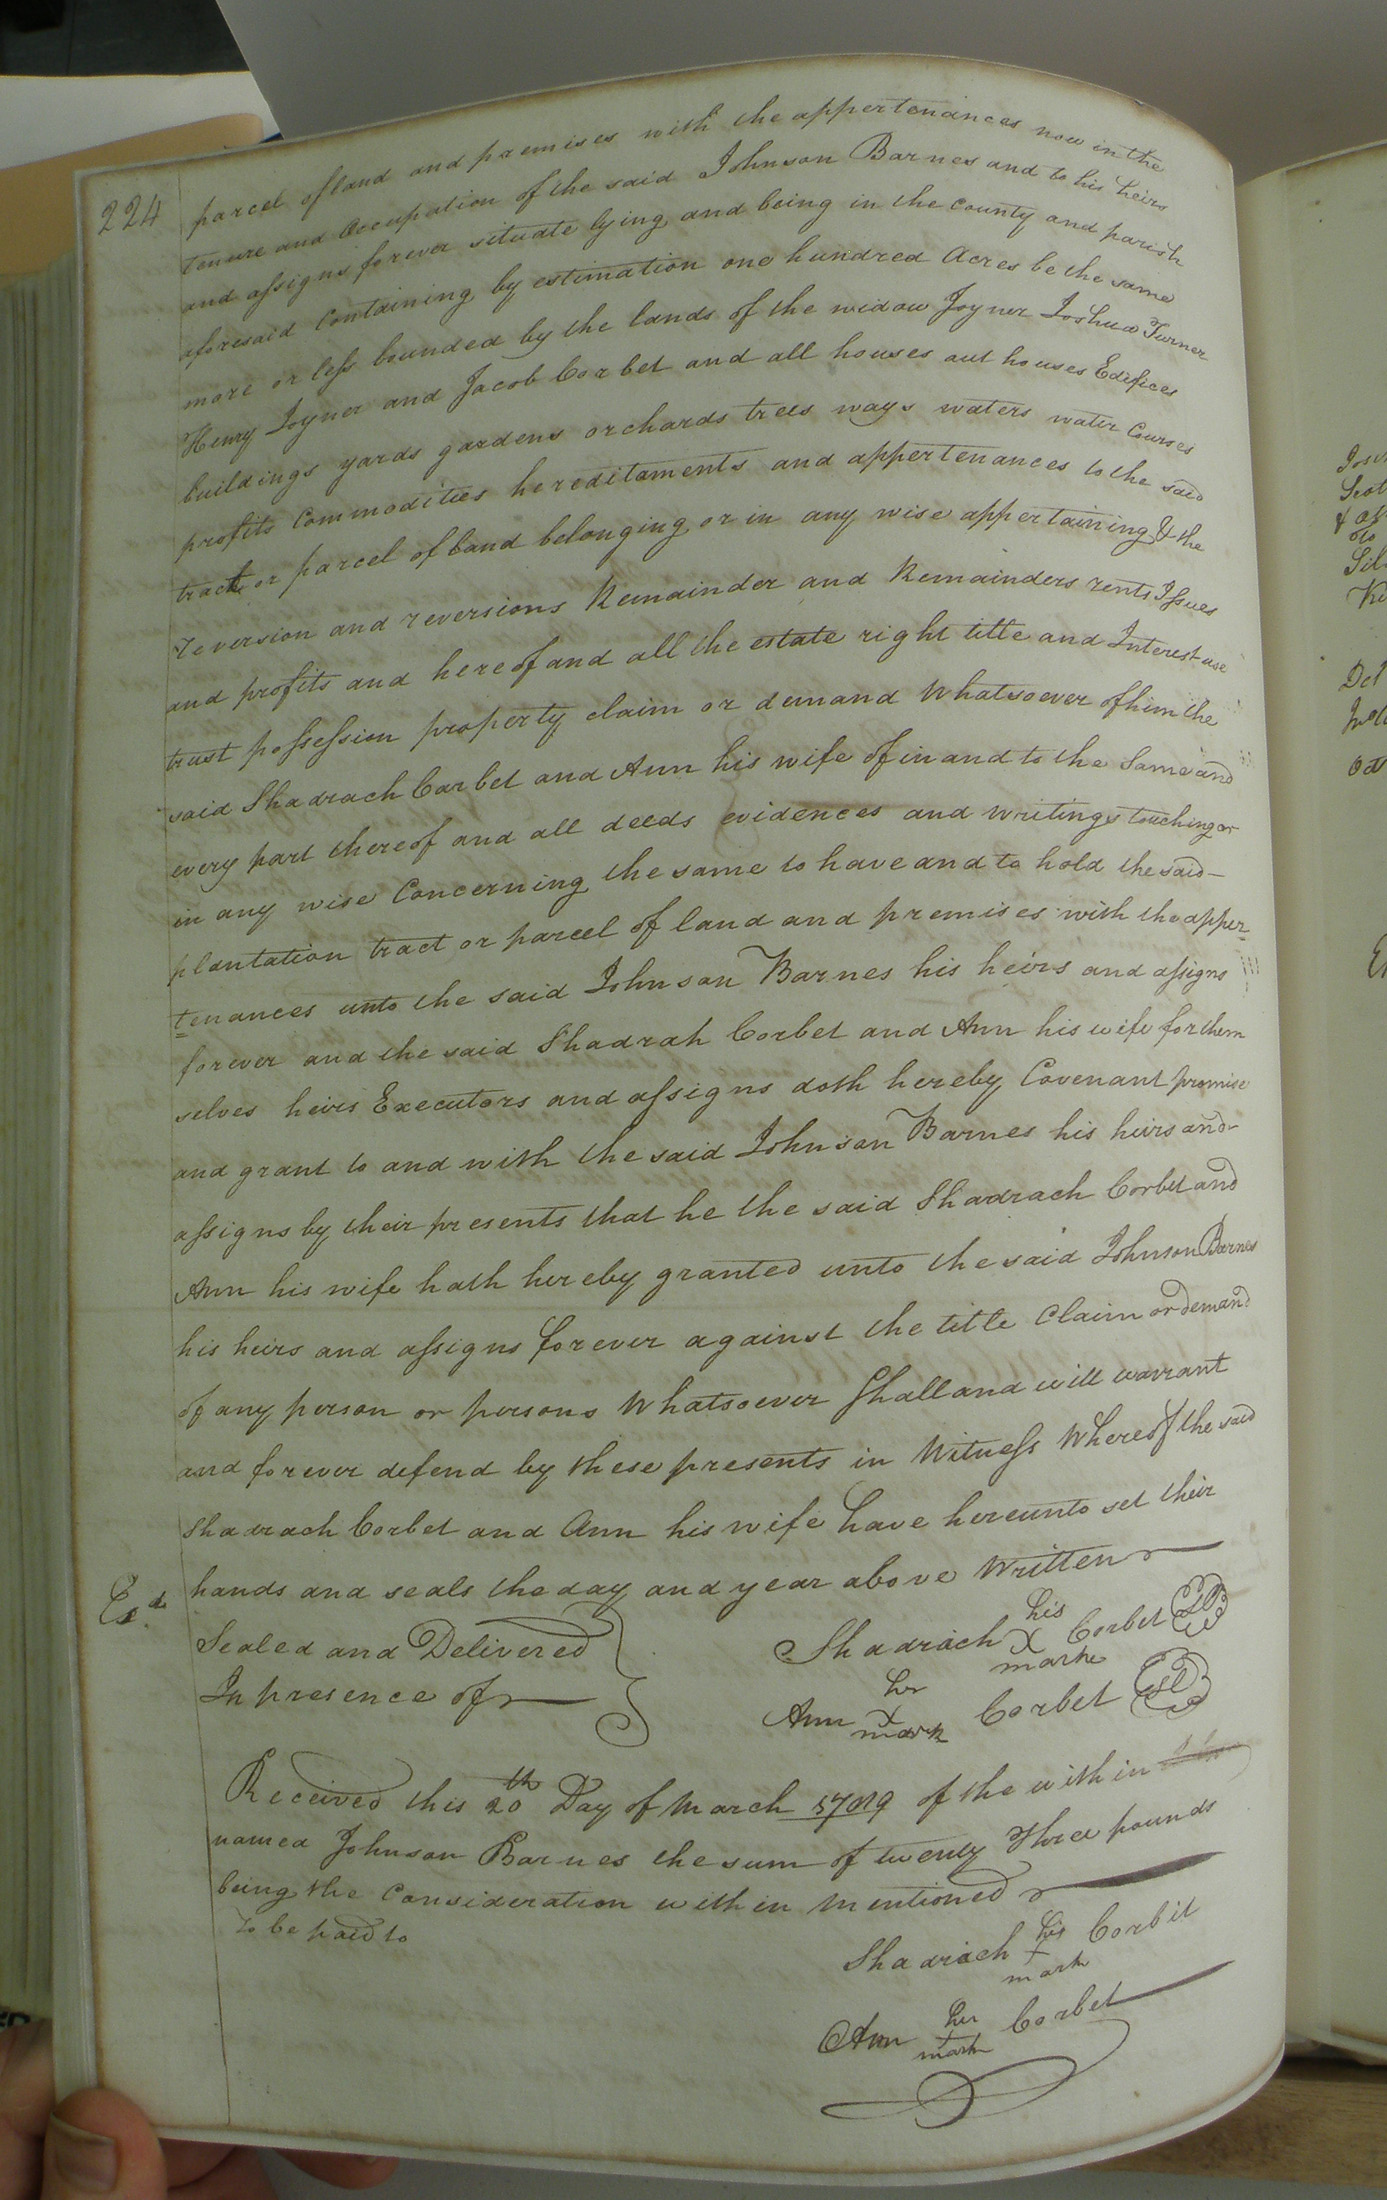 224
parcel of land and premises with the appertenances now in the
tenure and Occupation of the said Johnson Barnes and to his heirs
and assigns forever situate lying and being in the county and parish
aforesaid Containing by estimation one hundred Acres be the same
more or less bounded by the lands of the widow Joyner Joshua Turner
Henry Joyner and Jacob Corbet and all houses out houses Edifices
buildings yards gardens orchards trees ways waters water Courses
profits Commodities hereditaments and appertenances to the said
tract or parcel of land belonging or in any wise appertaining & the
reversion and reversions Remainder and Remainders rents Issues
and profits and hereof and all the estate right title and Interest use
trust possession property claim or demand Whatsoever of him the
said Shadrach Corbet and Ann his wife of in and to the Same and
every part thereof and all deeds evidences and writings touching or
in any wise Concerning the same to have and to hold the said
plantation tract or parcel of land and premises with the apper
tenances unto the said Johnson Barnes his heirs and assigns
forever and the said Shadrah Corbet and Ann his wife for them
selves heirs Executors and assigns doth hereby Covenant promise
and grant to and with the said Johnson Barnes his heirs and
assigns by their presents that he the said Shadrach Corbet and
Ann his wife hath hereby granted unto the said Johnson Barnes
his heirs and assigns forever against the title Claim or demand
of any person or persons Whatsoever Shall and will warrant
and forever defend by these presents in Witness Whereof the said
Shadrach Corbet and Ann his wife have hereunto set their
Exd. hands and seals the day and year above Written
Sealed and Delivered
In presence of
Shadrach his X mark Corbet
Ann her X mark Corbet
Received this 20th Day of March of the within
named Johnson Barnes the sum of twenty Three pounds
being the Consideration within mentioned
to be paid to
Shadrach his X mark Corbit
Ann her X mark Corbet